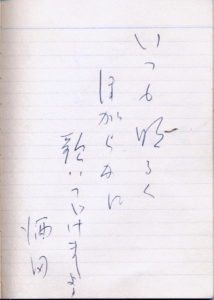 いつも明るく
ほがらかに
歌っていけますよう
酒田